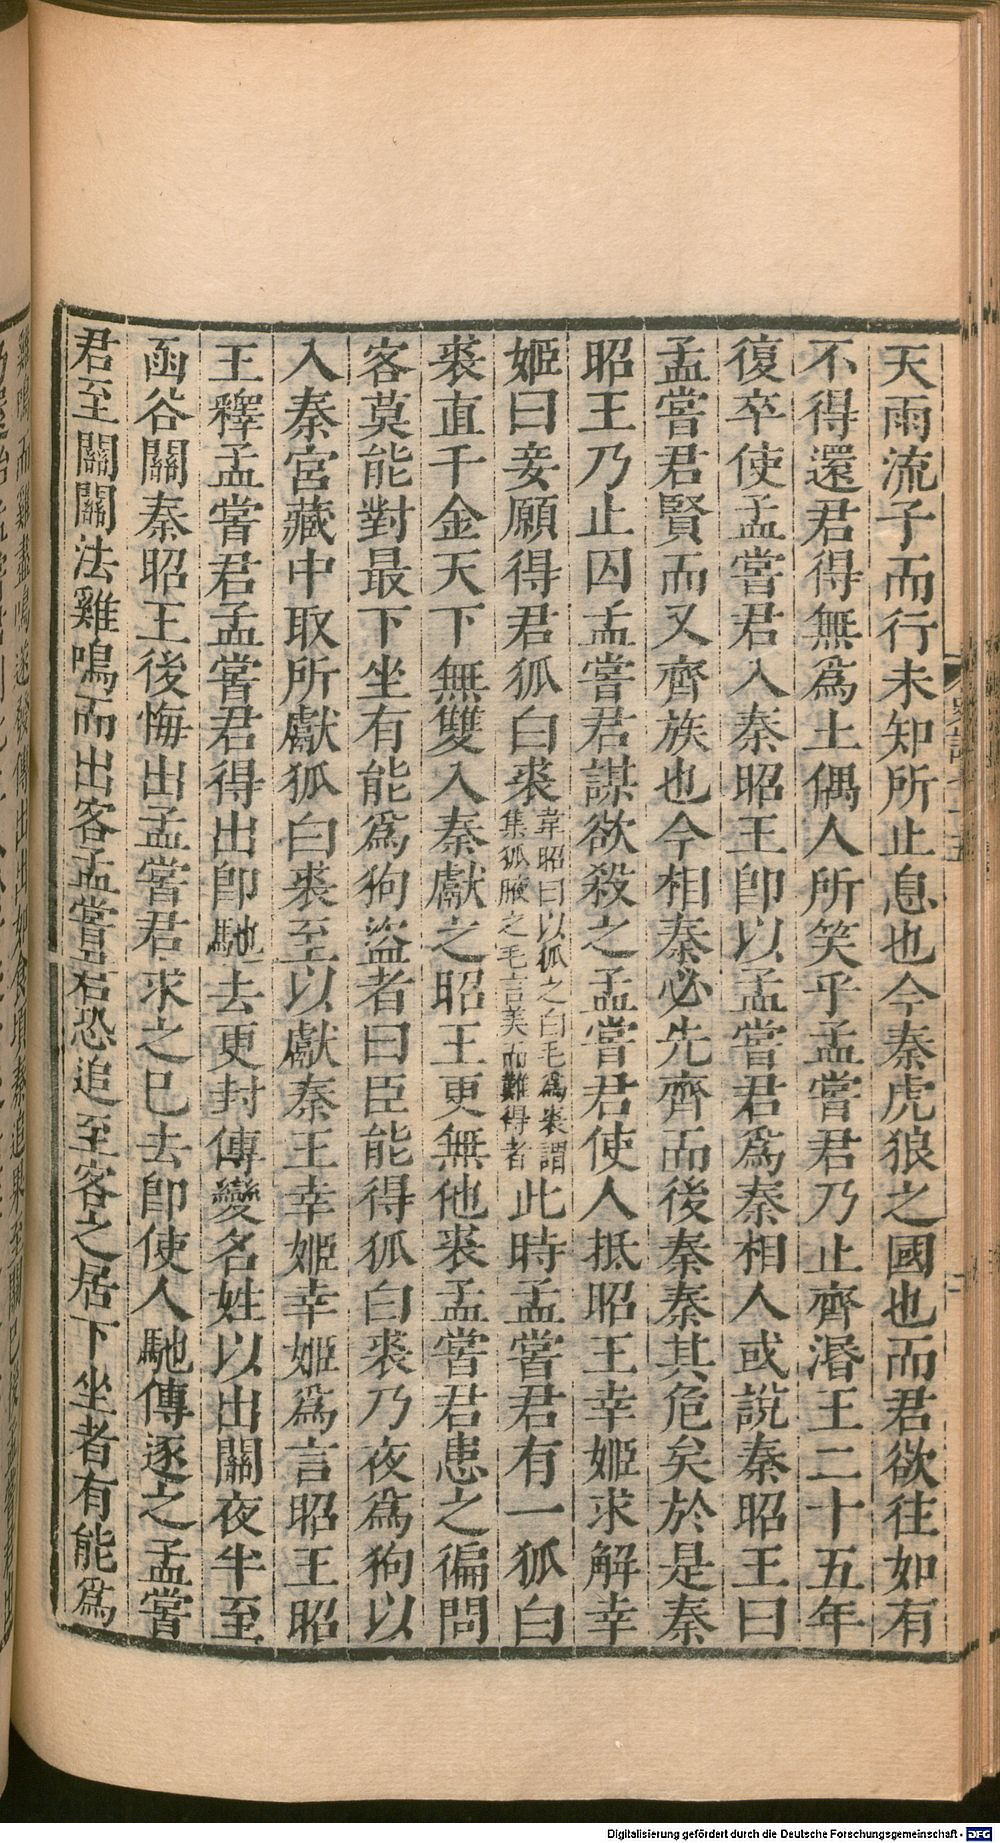 天雨流子而行未知所止息也今秦虎狼之國也而君欲往如有
不得還君得無爲土偶人所笑乎孟嘗君乃止齊湣王二十五年
復卒使孟嘗君入秦昭王卽以孟嘗君爲秦相人或說秦昭王曰
孟嘗君賢而又齊族也今相秦必先齊而後秦秦其危矣於是秦
昭王乃止囚孟嘗君謀欲殺之孟嘗君使人抵昭王幸姬求解幸
姬曰妾願得君狐白裘韋昭曰以狐之白毛爲裘謂集狐腋之毛言美而難得者此時孟嘗君有一狐白
裘直千金天下無雙入秦獻之昭王更無他裘孟嘗君患之徧問
客莫能對最下坐有能爲狗盜者曰臣能得狐白裘乃夜爲狗以
入秦宮藏中取所獻狐白裘至以獻秦王幸姬幸姬爲言昭王昭
王釋孟嘗君孟嘗君得出卽馳去更封傳變名姓以出關夜半至
函谷關秦昭王後悔出孟嘗君求之已去卽使人馳傳逐之孟嘗
君至關關法雞鳴而出客孟嘗君恐追至客之居下坐者有能爲
Digitalisierung gefördert durch die Deutsche Forschungsgemeinschaft - DFG